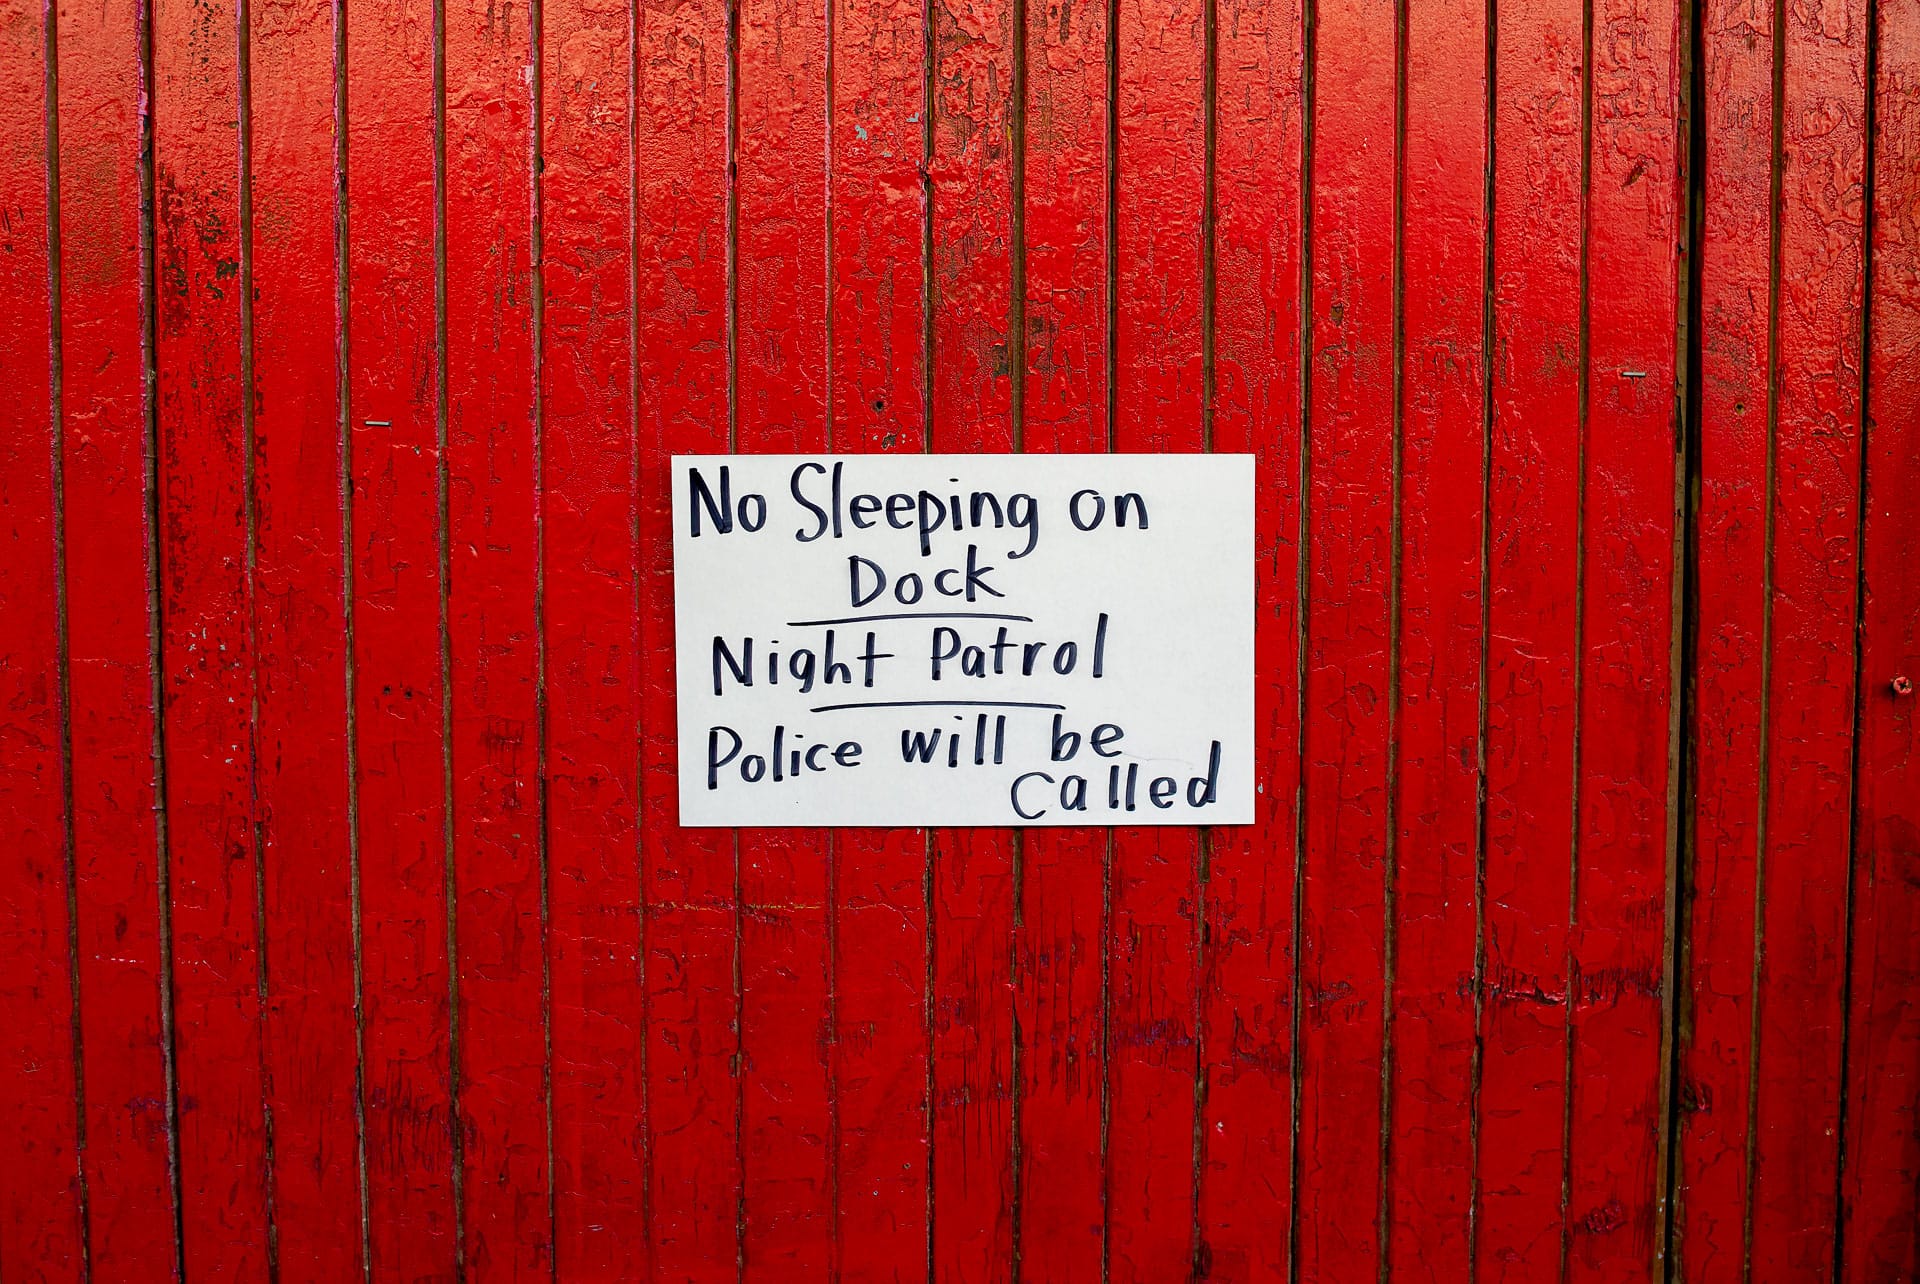 No Sleeping on
Dock
Night Patrol
Police will be
called